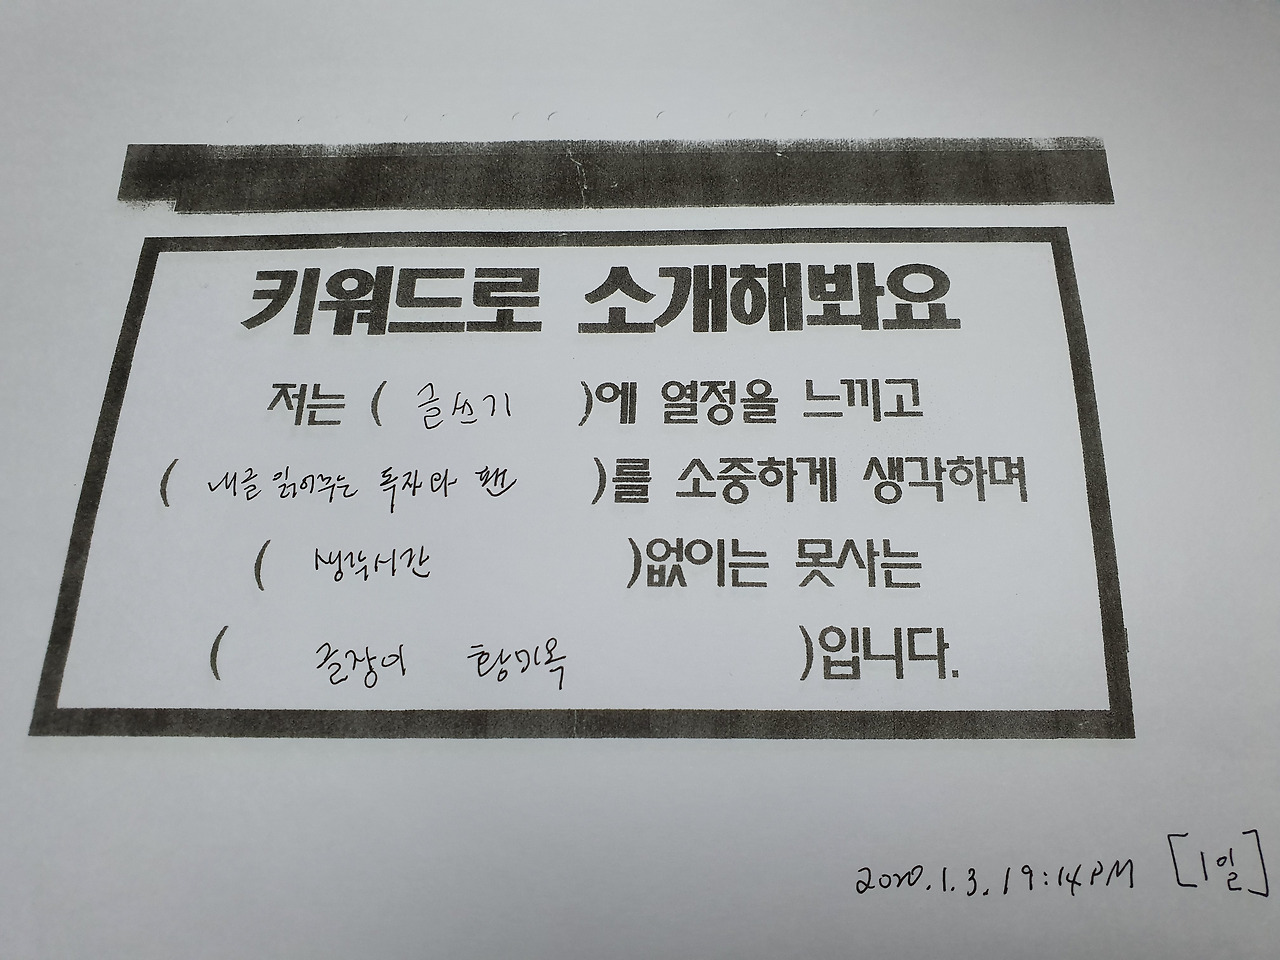 키워드로 소개해봐요
저는 ( 글쓰기 )에 열정을 느끼고
( 내글 읽어주는 독자와 팬 )를 소중하게 생각하며
( 생각시간 )없이는 못사는
( 글장이 황미옥 )입니다.
2020.1.3. 19:14PM [1일]